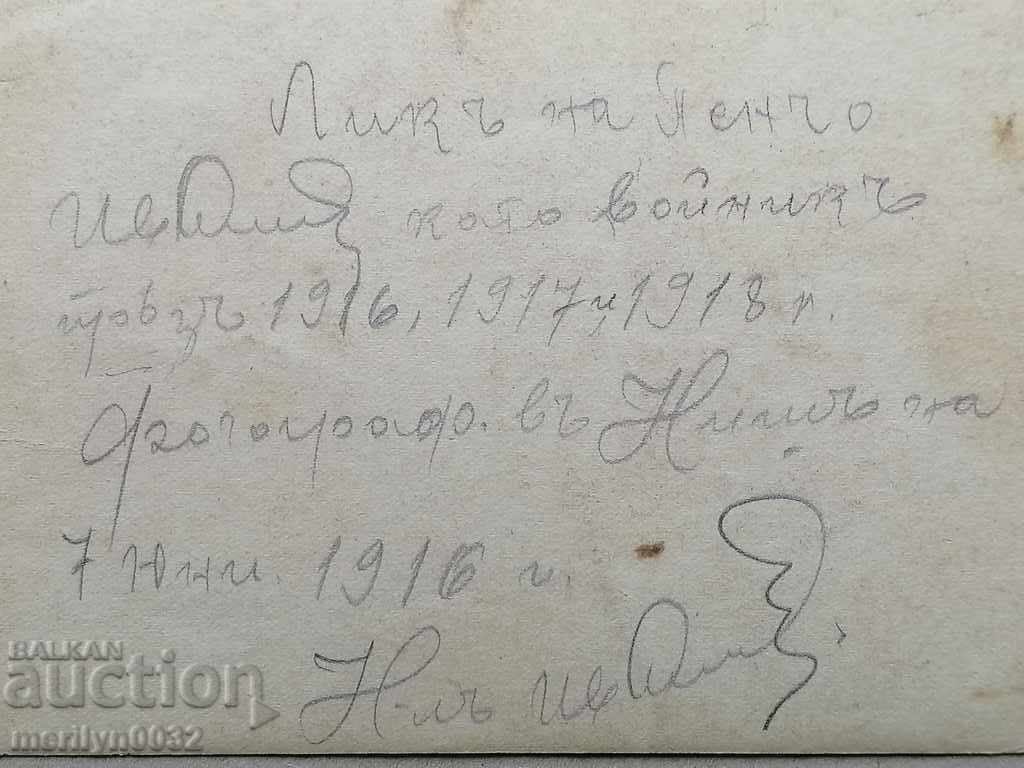 Ликъ на Пенчо
като войникъ
прѣзъ 1916, 1917 и 1918 г.
Фотограф. въ Нишъ на
7 Юни. 1916 г.
Н-лъ
BALKAN
auction
merilyn0032